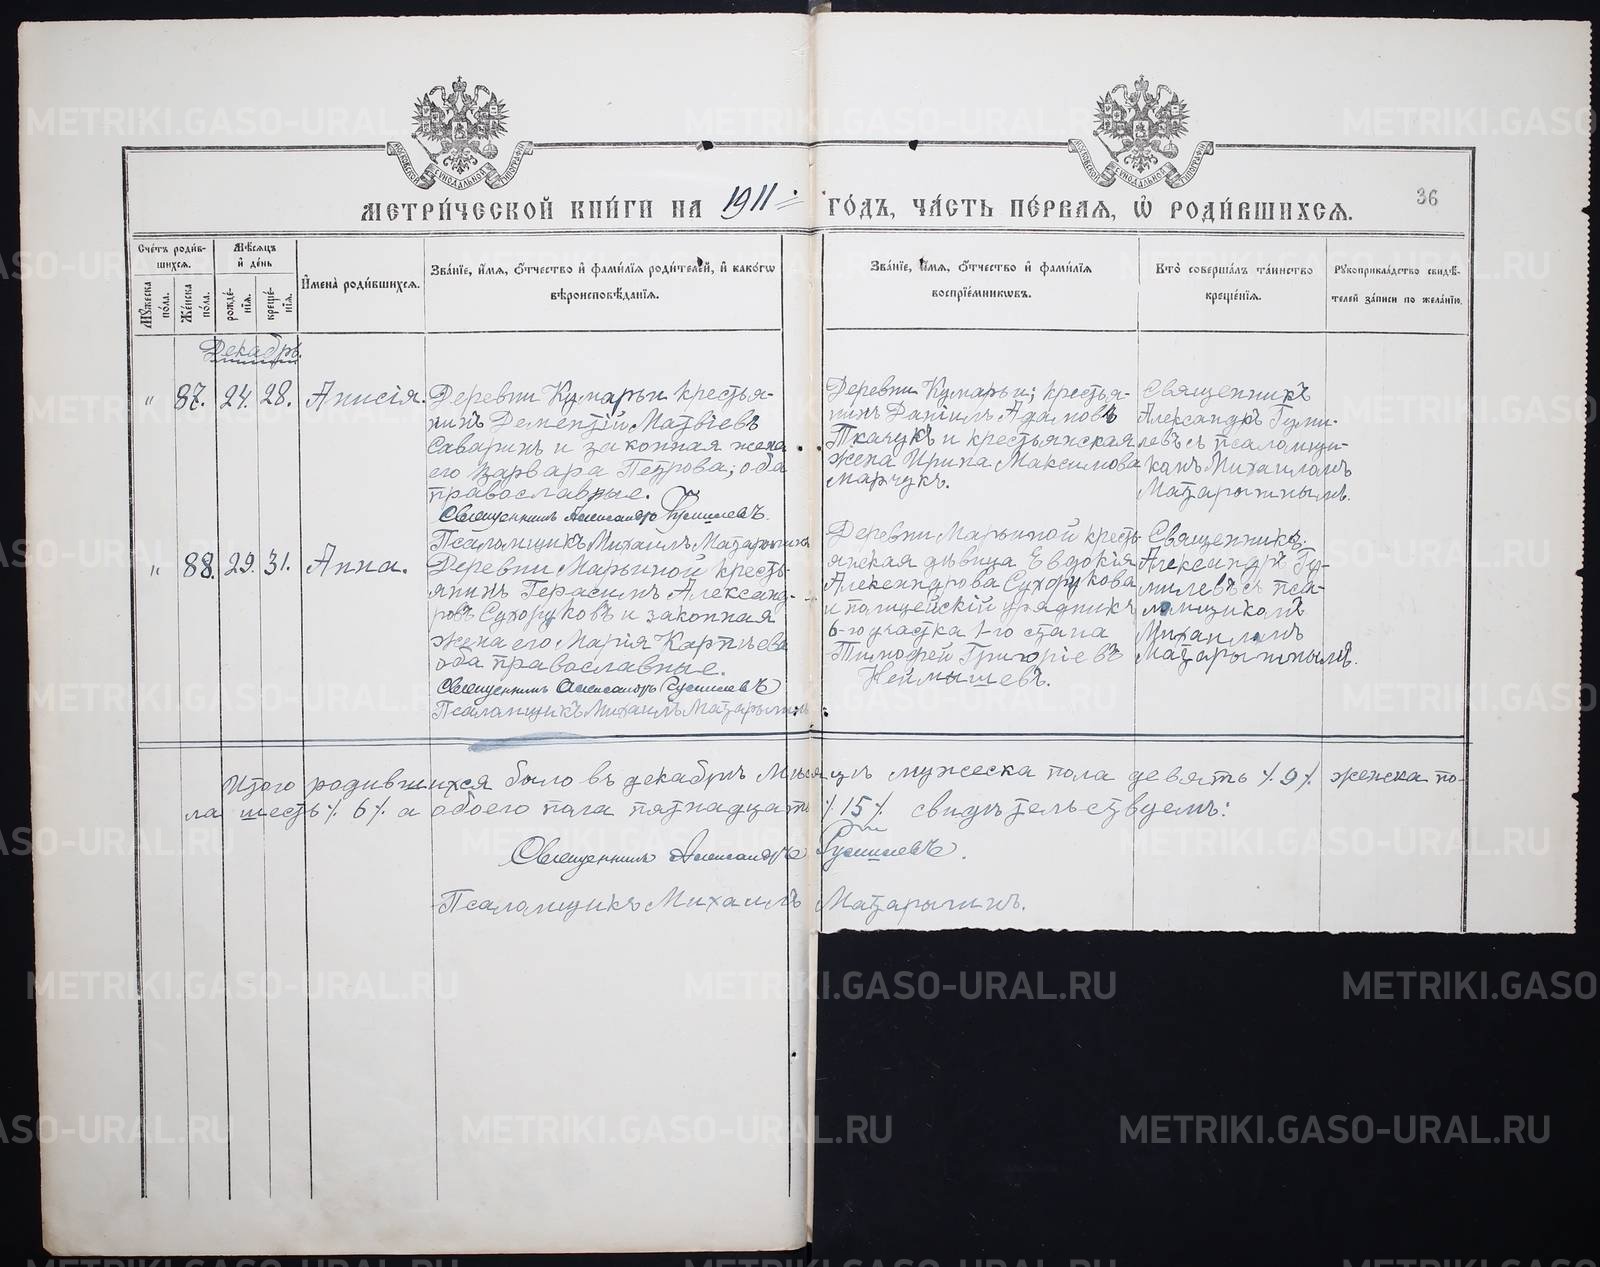 МОСКОВСКОЙ СѴНОДАЛЬНОЙ ТИПОГРАФІИ
МОСКОВСКОЙ СѴНОДАЛЬНОЙ ТИПОГРАФІИ
МЕТРИ́ЧЕСКОЙ КНИ́ГИ НА 1911 ГО́ДЪ, ЧА́СТЬ ПЕ́РВАЯ, Ѡ РОДИ́ВШИХСЯ.
36
Сче́тъ роди́в-
шихся.
Мꙋ́жеска по́ла.
Же́нска по́ла.
Мѣ́сяцъ и де́нь
рожде́-
нїя.
креще́-
нїя.
И҆мена̀ роди́вшихся.
Зва́нїе, и҆́мя, ѻ҆́тчество и҆ фами́лїя роди́телей, и҆ како́гѡ
вѣроисповѣ́данїя.
Зва́нїе, и҆́мя, ѻ҆́тчество и҆ фами́лїя
воспрїе́мникѡвъ.
Кто̀ соверша́лъ та́инство
креще́нїя.
Рꙋкоприкла́дство свидѣ́-
телей за́писи по жела́нїю.
Декабрь.
" 87. 24. 28. Анисія.
Деревни Кумарьи крестья-
нинъ Дементій Матвіевъ
Саваринъ и законная жена
его Варвара Петрова; оба
православные.
Священникъ Александръ Гумилевъ.
Псаломщикъ Михаилъ
Деревни Кумарьи; крестья-
нинъ Даніилъ Адамовъ
Ткачукъ и крестьянская
жена Ирина Максимова
Марчукъ.
Священникъ
Александръ Гуми-
левъ съ псаломщи-
комъ Михаиломъ
" 88. 29. 31. Анна.
Деревни Марьиной кресть-
янинъ Герасимъ Александ-
ровъ Сухоруковъ и законная
жена его Марія Карпьева
оба православные.
Священникъ Александръ Гумилевъ
Псаломщикъ Михаилъ
Деревни Марьиной кресть-
янская дѣвица Евдокія
Александрова Сухорукова
и полицейскій урядникъ
6-го участка 1-го стана
Тимофей Григоріевъ
Священникъ
Александръ Гу-
милевъ съ пса-
ломщикомъ
Михаиломъ
Итого родившихся было въ декабрѣ мѣсяцѣ мужеска пола девять ٪ 9 ٪ женска по-
ла шесть ٪ 6 ٪ а обоего пола пятнадцать ٪ 15 ٪ свидѣтельствуемъ:
Священникъ Александръ Гумилевъ.
Псаломщикъ Михаилъ
METRIKI.GASO-URAL.RU